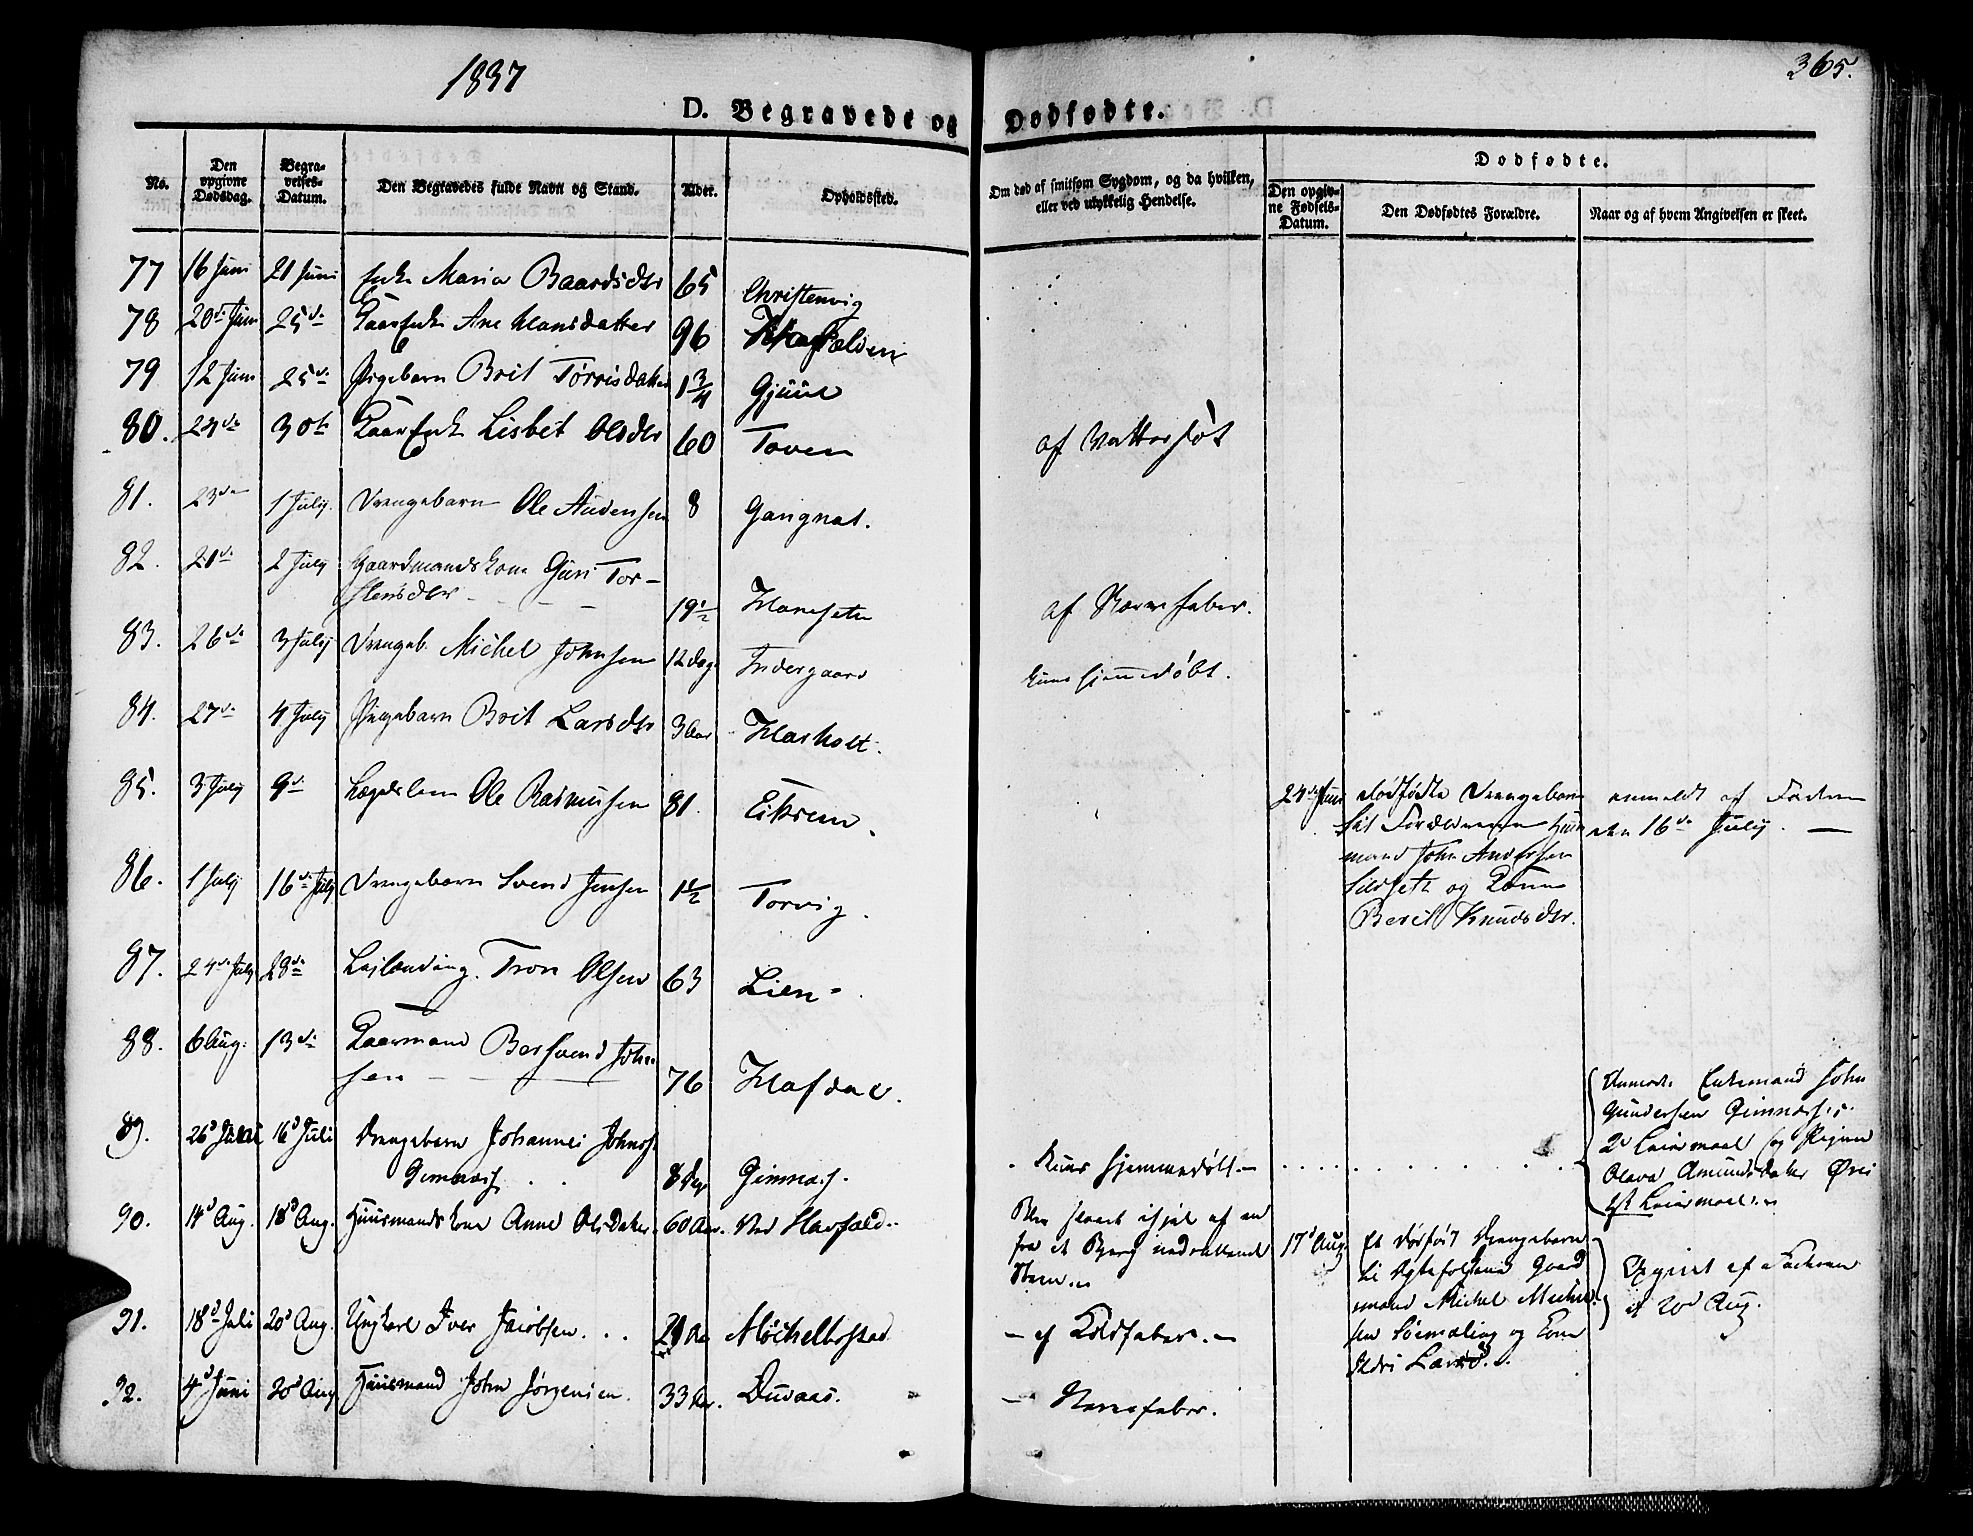 1837
365.
D. Begravede og Dødfødte.
No.
Den opgivne Dødsdag.
Begravelses-Datum.
Den Begravedes fulde Navn og Stand.
Alder.
Opholdssted.
Om død af smitsom Sygdom, og da hvilken, eller ved ulykkelig Hendelse.
Dødfødte.
Den opgivne Fødsels-Datum.
Den Dødfødtes Forældre.
Naar og af hvem Angivelsen er skeet.
77 16 Juni 21 Juni Enke Maria Baardsdtr 65 Christenvig
78 20de Juni 25de Enke Ane Hansdatter 96
79 12 Juni 25de Pigebarn Brit Torrisdatter 1 3/4
80. 24de 30te Enke Lisbet Olsdtr 60 Toven af Vattersot
81. 23de 1 July. Drengebarn Ole Audensen 8 Gangnat.
82. 21de 2 July Gaardmandskone Guri Tor-
stensdtr - - - 19 1/2 Haneseth af Nervefeber.
83. 26de 3 July Drengeb. Michel Johnsen 12 dag Indergaard kuns hjemedøbt.
84. 27de 4 July Pigebarn Brit Larsdtr 3 Aar Harholt.
85. 3 July 9de Lægdslem Ole Rasmusen 81. Eikrem.
24de Juni dødfødte Drengebarn
mand John Andersen
og Kone
Berit Knudsdtr.
anmeldt af Faderen
den 16de July. -
86. 1 July 16de July Drengebarn Svend Jensen 1 1/2 Torvig.
87. 24de July 28de Tron Olsen 63 Lien
88. 6 Aug. 13de Gaarmand Bersvend John-
sen - - 76 Hafdal.
89. 26d Juni 16d Juli Drengebarn Johannes Johns.
Gimnæs. 8 Dage Gimnæs.
Kuns hjemmedøbt.
Enkemand John
Gundersen Gimnæs
2d Leiermaal og Pigen
Olava Amundsdater
1st Leiermaal.
90. 14d Aug. 18d Aug. Huusmandskone Anne Olsdater. 60 Aar. Ved Harfald.
Blev slaaet ihjel af en
fra et Bjerg nedrullende
Steen.
17d Aug. Et dødfødt Drengebarn
til Ægtefolkene Gaard-
mand Michel Michel-
sen Sørmæling og Kone
Ildri Larsd.
Angivet af Faderen
d 20d Aug.
91. 18d Juli 20d Aug. Ungkarl Iver Jacobsen. . . 21 Aar Møchelbostad - af Koldfeber. -
92. 4d Juni 20d Aug Huusmand John Jørgensen. 33 Aar. Duaas. - Nervefeber.